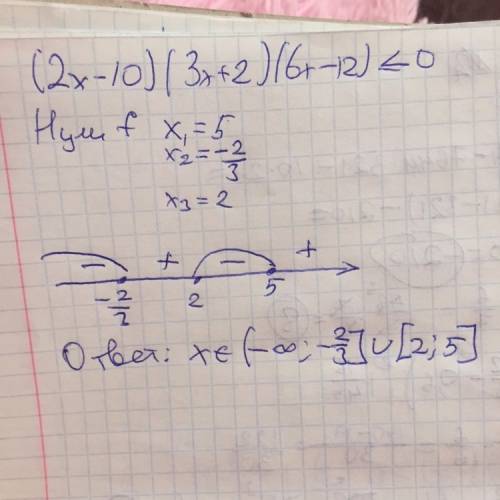 (2x-10)(3x+2)(6x-12)≤0
Нули f x₁=5
x₂=-2/3
x₃=2
- + - +
-2/3 2 5
Ответ: x∈(-∞;-2/3]∪[2;5]